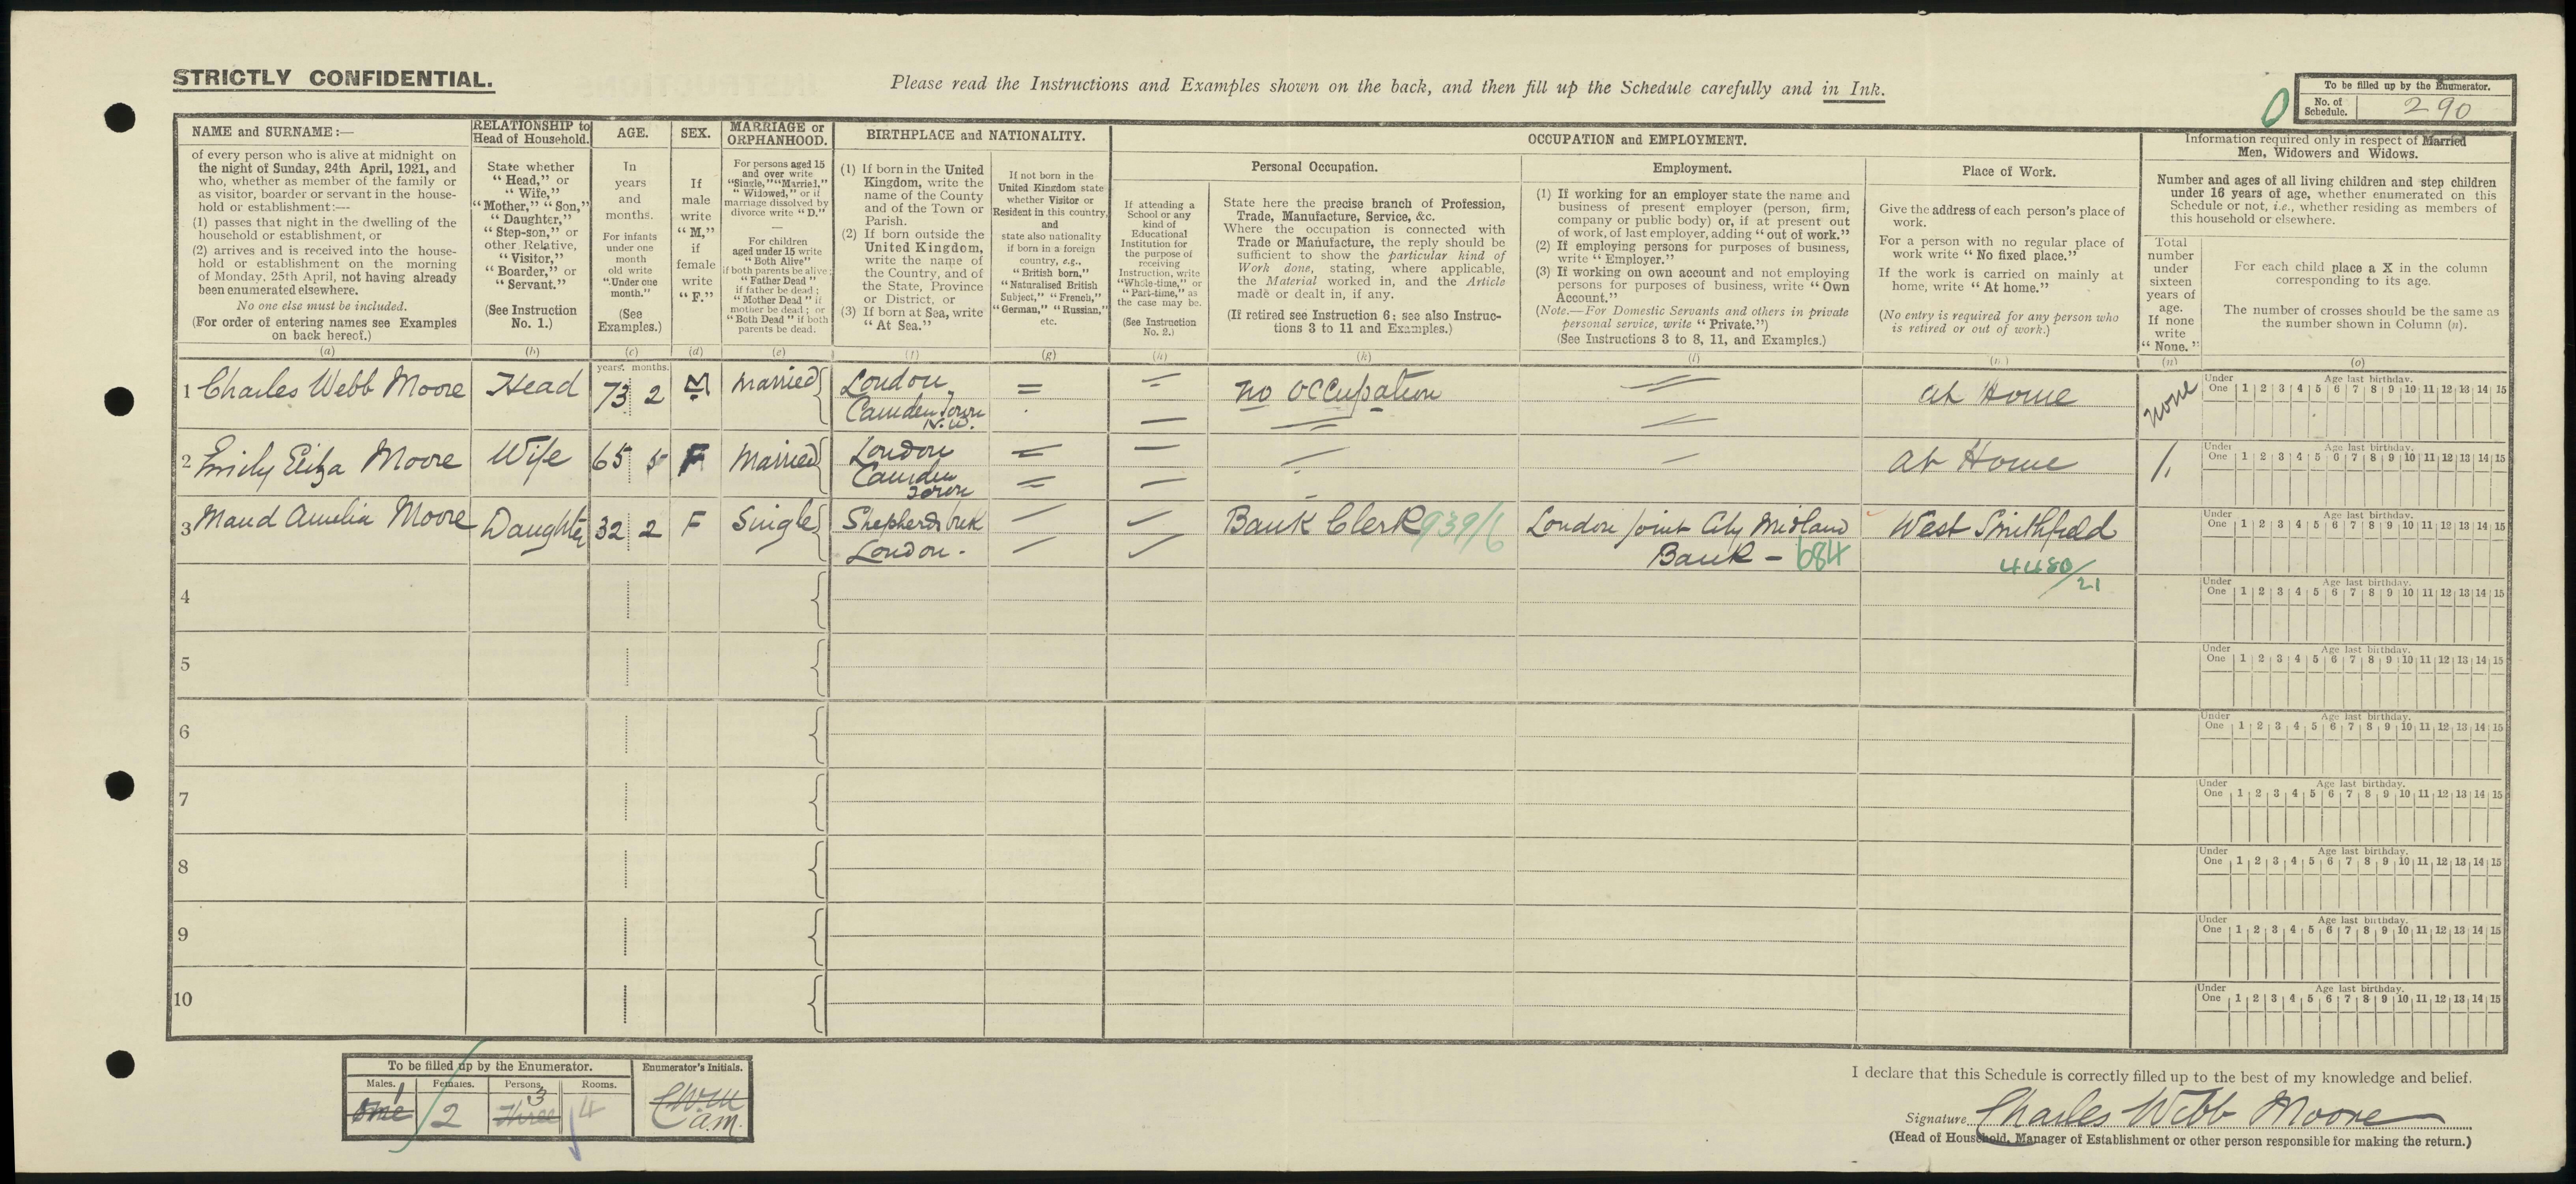 STRICTLY CONFIDENTIAL.
Please read the Instructions and Examples shown on the back, and then fill up the Schedule carefully and in Ink.
0
To be filled up by the Enumerator.
No. of Schedule. 290
NAME and SURNAME:—
of every person who is alive at midnight on
the night of Sunday, 24th April, 1921, and
who, whether as member of the family or
as visitor, boarder or servant in the house-
hold or establishment:—
(1) passes that night in the dwelling of the
household or establishment, or
(2) arrives and is received into the house-
hold or establishment on the morning
of Monday, 25th April, not having already
been enumerated elsewhere.
No one else must be included.
(For order of entering names see Examples
on back hereof.)
(a)
RELATIONSHIP to
Head of Household.
State whether
"Head," or
"Wife,"
"Mother," "Son,"
"Daughter,"
"Step-son," or
other Relative,
"Visitor,"
"Boarder," or
"Servant."
(See Instruction
No. 1.)
(b)
AGE.
In
years
and
months.
For infants
under one
month
old write
"Under one
month."
(See
Examples.)
(c)
SEX.
If
male
write
"M,"
if
female
write
"F."
(d)
MARRIAGE or
ORPHANHOOD.
For persons aged 15
and over write
"Single," "Married,"
"Widowed," or if
marriage dissolved by
divorce write "D."
—
For children
aged under 15 write
"Both Alive"
if both parents be alive;
"Father Dead"
if father be dead;
"Mother Dead" if
mother be dead; or
"Both Dead" if both
parents be dead.
(e)
BIRTHPLACE and NATIONALITY.
(1) If born in the United
Kingdom, write the
name of the County
and of the Town or
Parish.
(2) If born outside the
United Kingdom,
write the name of
the Country, and of
the State, Province
or District, or
(3) If born at Sea, write
"At Sea."
(f)
If not born in the
United Kingdom state
whether Visitor or
Resident in this country,
and
state also nationality
if born in a foreign
country, e.g.,
"British born,"
"Naturalised British
Subject," "French,"
"German," "Russian,"
etc.
(g)
OCCUPATION and EMPLOYMENT.
If attending a
School or any
kind of
Educational
Institution for
the purpose of
receiving
Instruction, write
"Whole-time," or
"Part-time," as
the case may be.
(See Instruction
No. 2.)
(h)
Personal Occupation.
State here the precise branch of Profession,
Trade, Manufacture, Service, &c.
Where the occupation is connected with
Trade or Manufacture, the reply should be
sufficient to show the particular kind of
Work done, stating, where applicable,
the Material worked in, and the Article
made or dealt in, if any.
(If retired see Instruction 6; see also Instruc-
tions 3 to 11 and Examples.)
(k)
Employment.
(1) If working for an employer state the name and
business of present employer (person, firm,
company or public body) or, if at present out
of work, of last employer, adding "out of work."
(2) If employing persons for purposes of business,
write "Employer."
(3) If working on own account and not employing
persons for purposes of business, write "Own
Account."
(Note.—For Domestic Servants and others in private
personal service, write "Private.")
(See Instructions 3 to 8, 11, and Examples.)
(l)
Place of Work.
Give the address of each person's place of
work.
For a person with no regular place of
work write "No fixed place."
If the work is carried on mainly at
home, write "At home."
(No entry is required for any person who
is retired or out of work.)
(m)
Information required only in respect of Married
Men, Widowers and Widows.
Number and ages of all living children and step children
under 16 years of age, whether enumerated on this
Schedule or not, i.e., whether residing as members of
this household or elsewhere.
Total
number
under
sixteen
years of
age.
If none
write
"None."
(n)
For each child place a X in the column
corresponding to its age.
The number of crosses should be the same as
the number shown in Column (n).
(o)
years. months.
1 Charles Webb Moore Head 73 2 M Married London = no occupation at Home none
Camden Town
N.W.
Under One Age last birthday. 1 2 3 4 5 6 7 8 9 10 11 12 13 14 15
2 Emily Eliza Moore Wife 65 5 F Married London = at Home 1.
Camden
Town
Under One Age last birthday. 1 2 3 4 5 6 7 8 9 10 11 12 13 14 15
3 Maud Amelia Moore Daughter 32 2 F Single Shepherds Bush Bank Clerk 939/6 London Joint City Midland West Smithfield
London. Bank - 684 4480/21
Under One Age last birthday. 1 2 3 4 5 6 7 8 9 10 11 12 13 14 15
4
Under One Age last birthday. 1 2 3 4 5 6 7 8 9 10 11 12 13 14 15
5
Under One Age last birthday. 1 2 3 4 5 6 7 8 9 10 11 12 13 14 15
6
Under One Age last birthday. 1 2 3 4 5 6 7 8 9 10 11 12 13 14 15
7
Under One Age last birthday. 1 2 3 4 5 6 7 8 9 10 11 12 13 14 15
8
Under One Age last birthday. 1 2 3 4 5 6 7 8 9 10 11 12 13 14 15
9
Under One Age last birthday. 1 2 3 4 5 6 7 8 9 10 11 12 13 14 15
10
Under One Age last birthday. 1 2 3 4 5 6 7 8 9 10 11 12 13 14 15
To be filled up by the Enumerator.
Males. Females. Persons. Rooms.
1 3
One 2 Three 4
Enumerator's Initials.
CWM
a.m.
I declare that this Schedule is correctly filled up to the best of my knowledge and belief.
Signature Charles Webb Moore
(Head of Household, Manager of Establishment or other person responsible for making the return.)